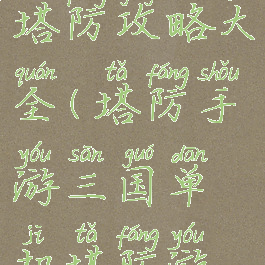 塔防攻略大
quán tǎ fáng shǒu
全(塔防手
yóu sān guó dān
游三国单
jī tǎ fáng yóu
机塔防游